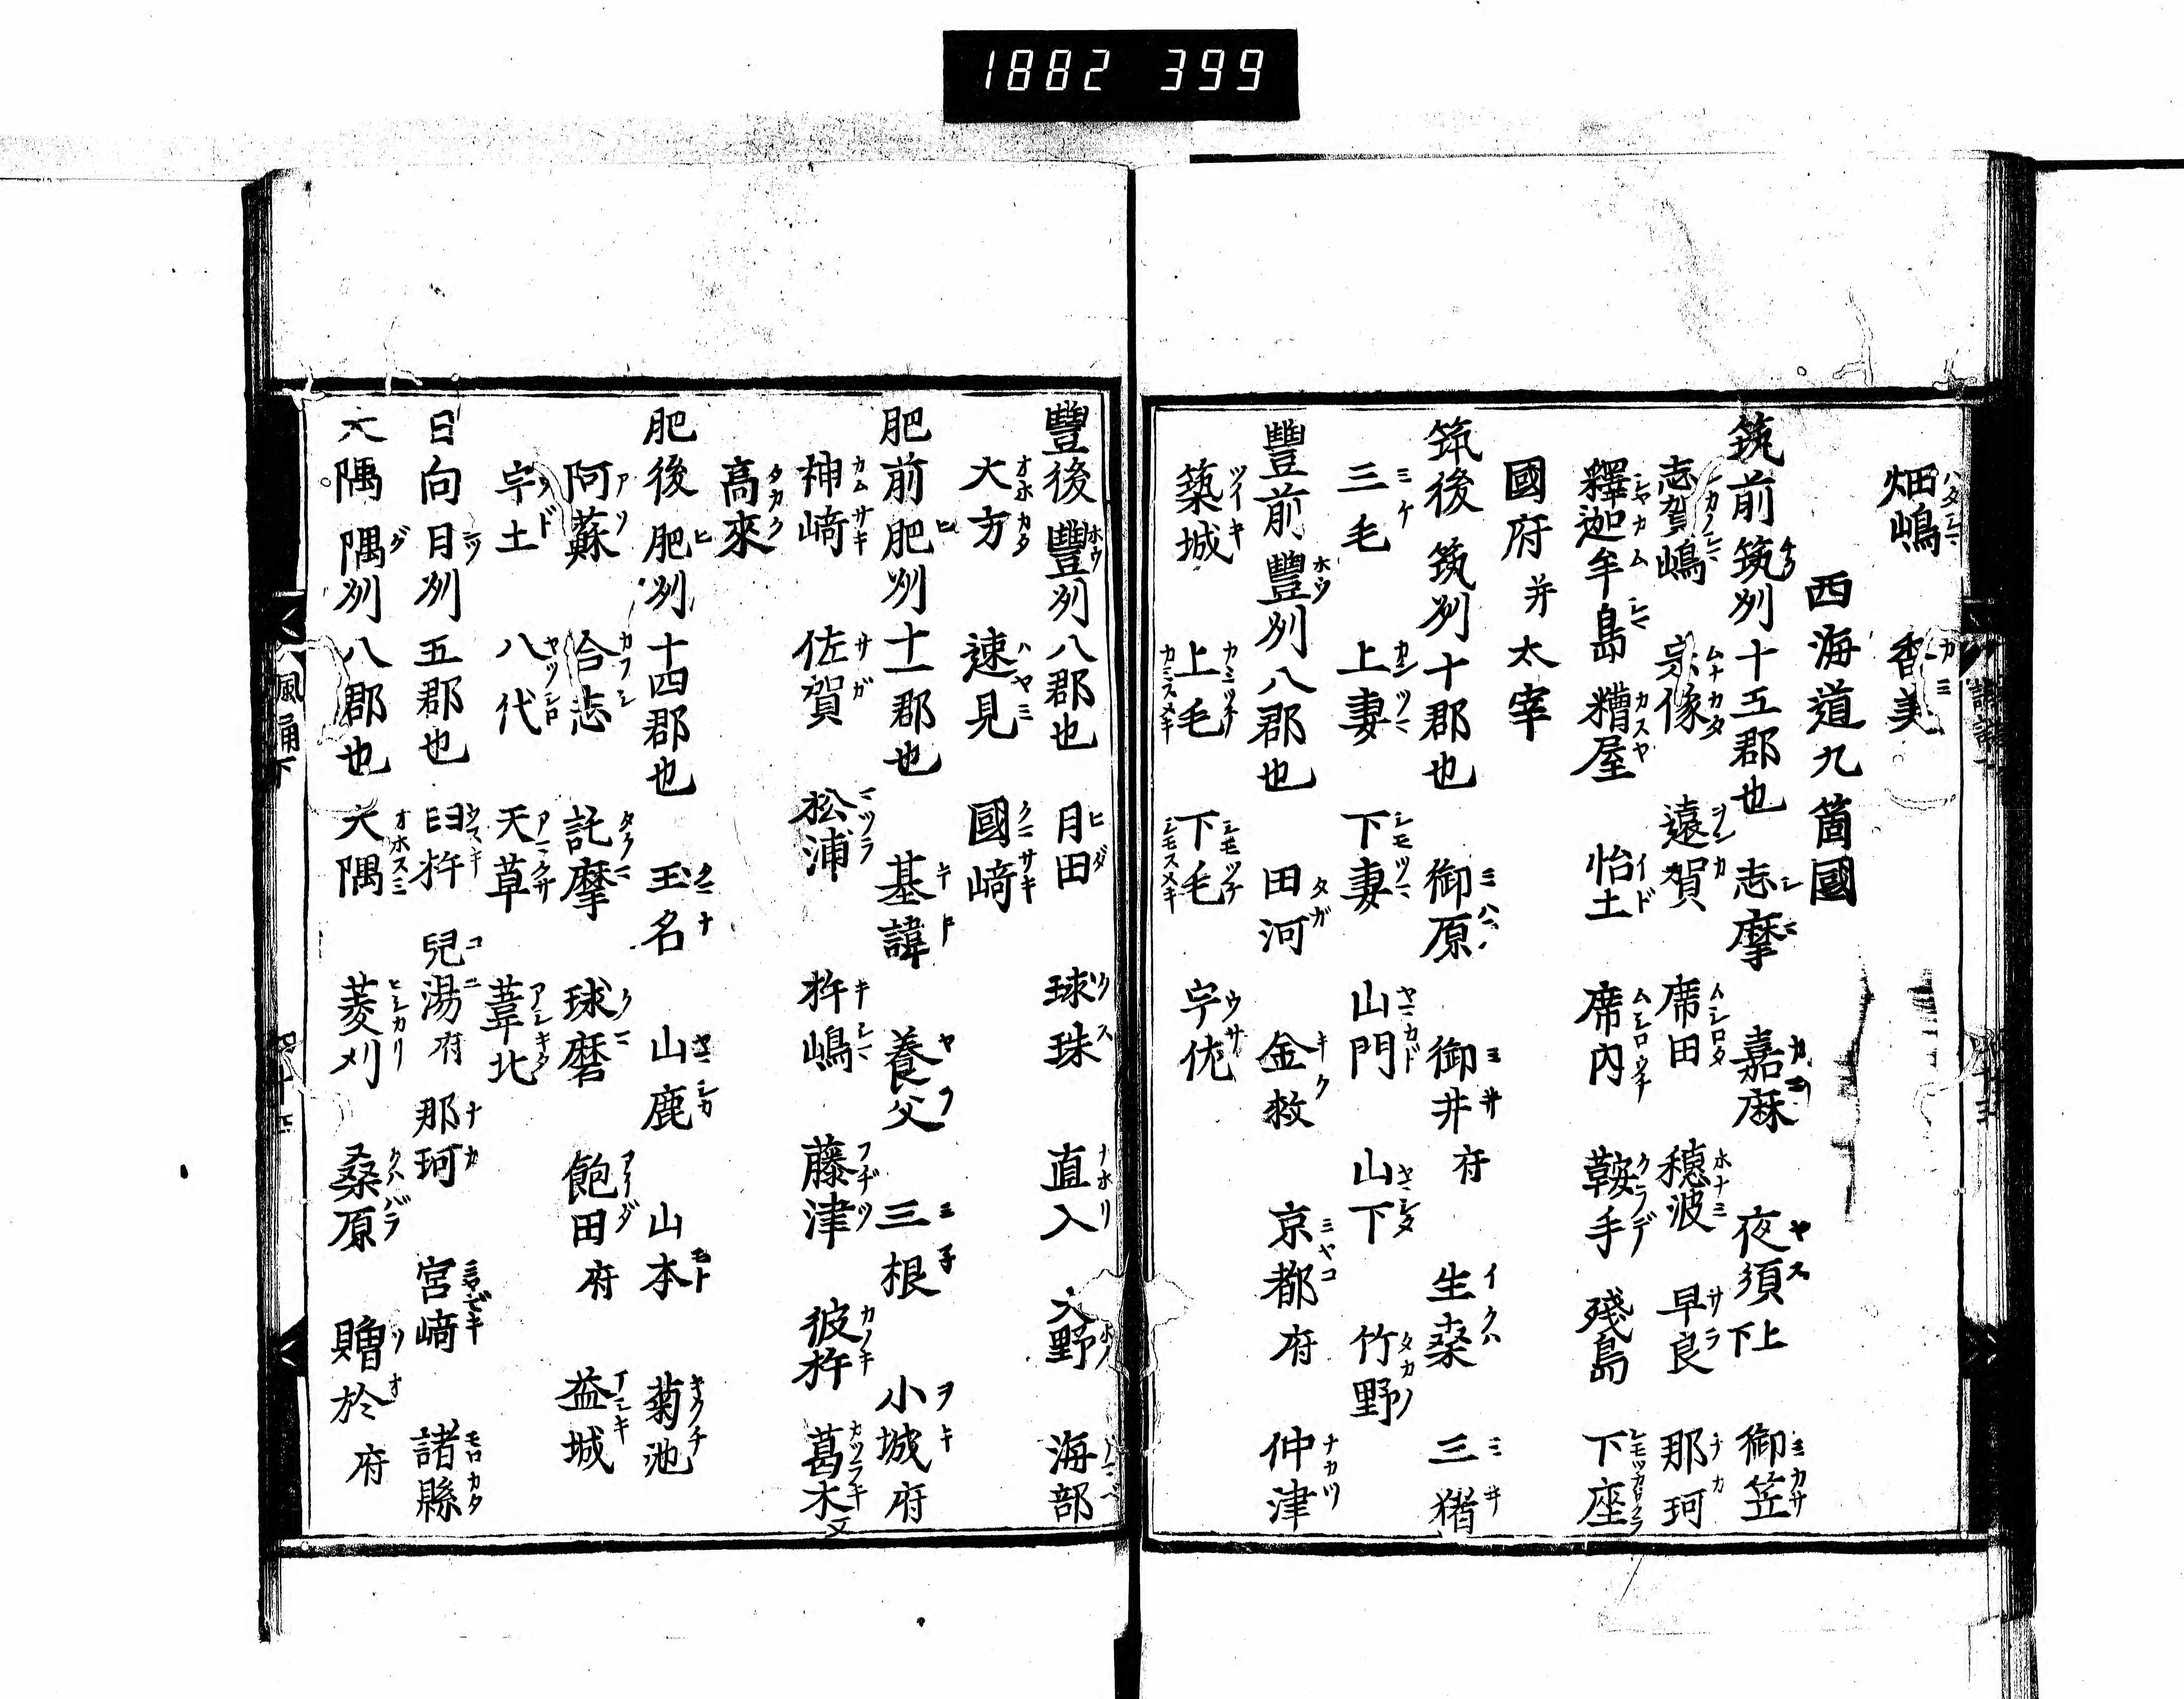 1882 399
畑嶋 香美
西海道九箇國
筑前 筑刕 十五郡也 志摩 嘉麻 夜須 上下 御笠
志賀嶋 宗像 遠賀 席田 穂波 早良 那珂
釋迦牟島 糟屋 怡土 席内 鞍手 殘島 下座
國府 并 太宰
筑後 筑刕 十郡也 御原 御井 府 生桒 三猪
三毛 上妻 下妻 山門 山下 竹野
豐前 豐刕 八郡也 田河 金救 京都 府 仲津
築城 上毛 下毛 宇佐
豐後 豐刕 八郡也 日田 球珠 直入 大野 海部
大方 速見 國﨑
肥前 肥刕 十一郡也 基諱 養父 三根 小城 府
神﨑 佐賀 松浦 杵嶋 藤津 彼杵 葛木 又
高來
肥後 肥刕 十四郡也 玉名 山鹿 山本 菊池
阿蘇 合志 託摩 球磨 飽田 府 益城
宇土 八代 天草 葦北
日向 日刕 五郡也 臼杵 兒湯 府 那珂 宮﨑 諸縣
大隅 隅刕 八郡也 大隅 菱刈 桒原 贈於 府